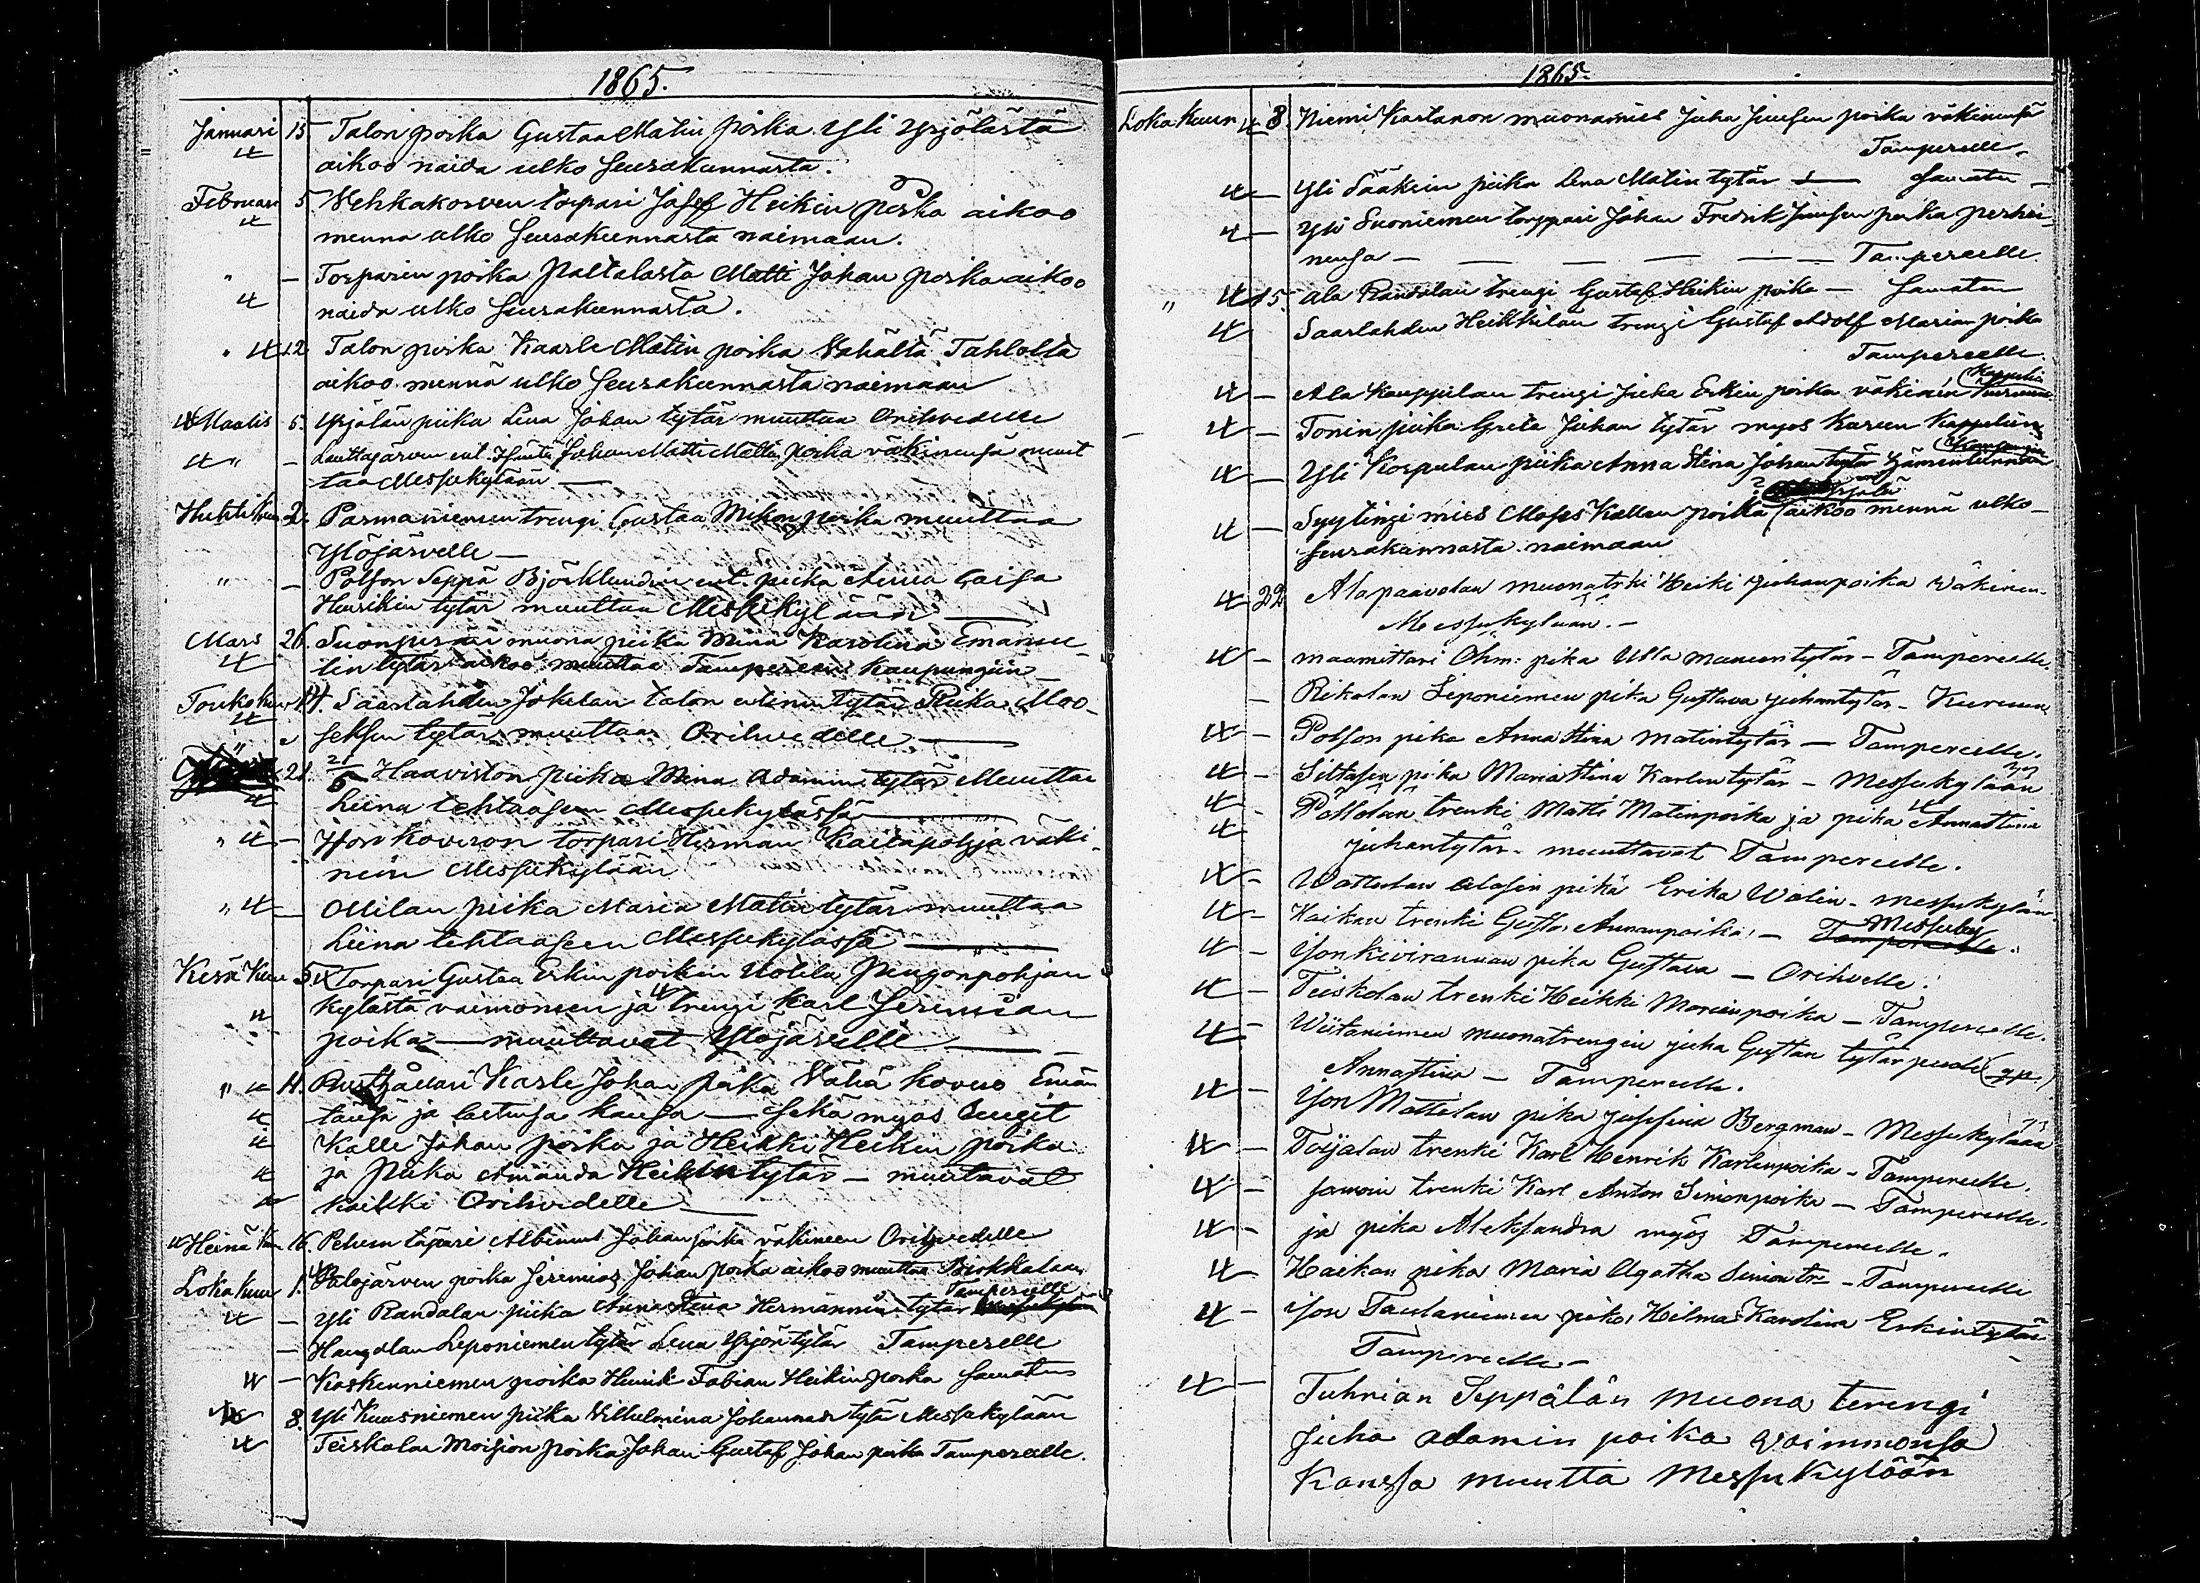 1865.
Januari 15. Talon poika Gustaa Matin poika Yli Yrjölästä
aikoo naida ulko seurakunnasta.
Februari 5. Wehkakorven torpari Josef Heikin poika aikoo
menna ulko seurakunnasta naimaan.
" — Torparin poika Paltalasta Matti Johan poika aikoo
naida ulko seurakunnasta.
" 12 Talon poika Kaarle Matin poika Vähältä Tahlolta
aikoo mennä ulko seurakunnasta naimaan
Maalis 5. Yrjölän piika Lena Johan tytär muuttaa Orihvedelle
" — Lauttajärven ent. Isäntä Johan Matti Matti poika väkinensä muut
taa Messukylään —
Huhtikuu 2. Parmaniemen trengi Gustaa Mikon poika muuttaa
Ylöjärvelle —
" — Polson Seppä Björklundin ent. piika Anna Caisa
Henrikin tytär muuttaa Messukylään —
Mars 26. Suonperän muona piika Mina Karolina Emanue-
lin tytär aikoo muuttaa Tampereen kaupungiin —
Toukokuu 14. Saarlahden Jokelan talon entinen tytär Riika Moo-
seksen tytär muuttaa Orihvedelle —
21. 21/5 Haaviston piika Mina Adamin tytär Muuttaa
Liina tehtaasen Messukylässä —
" — Ison Koveron torpari Herman Kaitapohja väki-
nein Messukylään
" — Ollilan piika Maria Matin tytär muuttaa
Liina tehtaaseen Messukylässä —
Kesä Kuu 5. Torpari Gustaa Erkin poikin Uotila Pengonpohjan
kylästä vaimonsen ja trengi Karl Jeremian
poika — muuttavat Ylöjärvelle —
" 11. Rusthållari Kaarle Johan poika Vähä Kovero Emän
tänsä ja lastensa kansa — sekä myös Rengit
Kalle Johan poika ja Heikki Heikin poika
ja Piika Amanda Heikin tytär — muutavat
kaikki Orihvedelle —
Heinä kuu 16. Albinus Johan poika väkineen Orihvedelle
Lokakuu 1. Palojärven poika Jeremias Johan poika aikoo muuttaa Birkkalaan
Tampereelle
— Yli Randalan piika Anna Stina Hermannin tytär
— Leponiemen tytär Lena Yrjön tytär Tamperelle
— Koskenniemen poika Henrik Fabian Heikin poika samaten
8. Yli Kuusniemen piika Vilhelmina Johannan tytär Messukylään
Teiskolan Moision poika Johan Gustaf Johan poika Tampereelle.
1865.
Lokakuun 8. Niemi Kartanon muonamies Juha Juusen poika väkinensä
Tampereelle —
— Yli Pääkein piika Lena Matin tytär — samaten —
— Yli Suoniemen torppari Johan Fredrik Juusen poika perhei-
nensa — — — — — Tampereelle.
" 15. Ala Randalan trengi Gustaf Heikin poika — samaten
Saarlahden Heikkilän trengi Gustaf Adolf Marian poika
Tampereelle.
Kappelin
— Ala Kauppilan trengi Juha Erkin poika väkinein Kuruun
— Tonin piika Greta Juhan tytär myös Kuruun Kappeliin
Kaupungin
— Yli Korpulan piika Anna Stina Johan tytär Hämenlinnaan
Yrjölä
— Syytingi mies Moses Kallen poika aikoo mennä ulko-
seurakunnasta naimaan
22 Alapaavolan muonatrki Heiki Juhanpoika Väkinen-
Messukylään. —
— maamittari Öhm: pika Ulla mauun tytär — Tampereelle.
— Rikalan Leponiemen pika Gustava Juhantytär — Kuruun
— Polson pika Anna Stina Matintytär — Tampereelle.
— Siltasen pika Maria Stina Karlen tytär — Messukylään
Pohtolan trenki Matti Matinpoika ja pika Annastina
juhantytär — muuttavat Tampereelle.
— Wattulan Alasen pikä Erika Walin — messukylän
Messuky
— Kaikan trenki Gusta Annanpoika — Tampereelle.
— Ison kivirannan pika Gustava — Orihvelle.
— Teiskolan trenki Heikki Marianpoika — Tampereelle.
— Wiitaniemen muonatrengin juha Gustan tytärpuoli
Annastina — Tampereelle.
— Ison Mattilan pika Josefina Bergman — Messukylään
— Toijalan trenki Karl Henrik Karlenpoika — Tampereelle.
— samoin trenki Karl Anton Simonpoika — Tampereelle.
— ja pika Aleksandra myös Tampereelle.
Kaikan pika Maria Agatha Simon tr — Tampereelle
— Ison Taulaniemen pika Hilma Karolina Erkintytär
Tampereelle —
— Tuhrian Seppälän muona terengi
Juha adamin poika Vaimmonsa
Kanssa muutta Messukylään